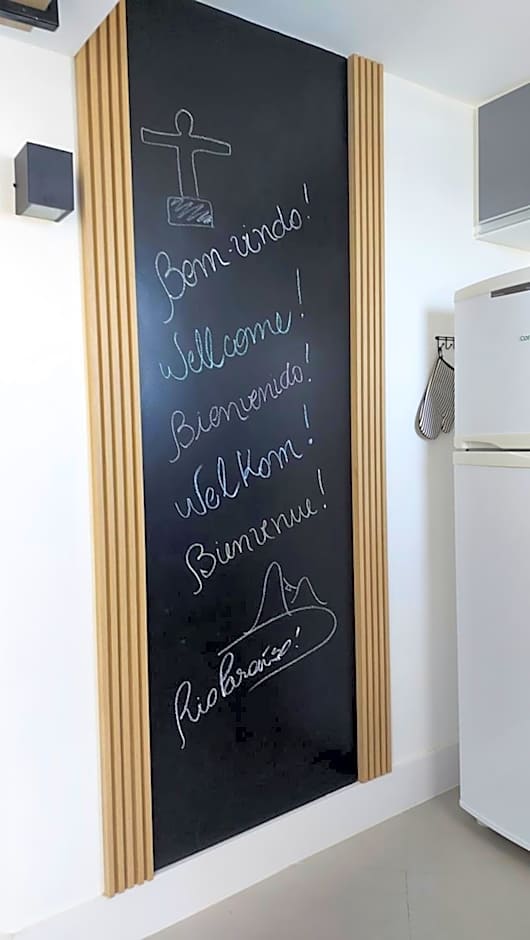 Bem-vindo!
Wellcome!
Bienvenido!
Welkom!
Bienvenue!
Rio Paraíso!